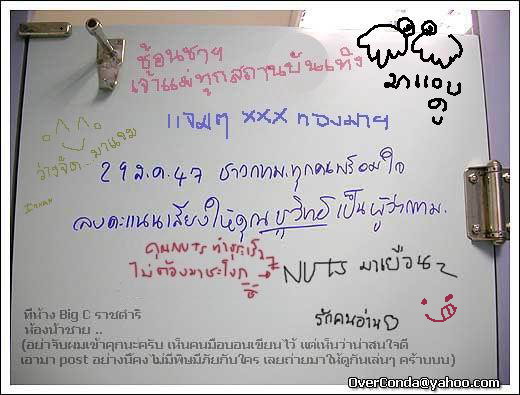 ช้อนชาฯ
เจ้าแม่ทุกสถานบันเทิง
มาแอบ
ดู
แจมๆ xxx ทองมาฯ
ว่างจัด.. มาแจม
29 ส.ค. 47 ชาวกทม. ทุกคนพร้อมใจ
ลงคะแนนเสียงให้คุณ ชูวิทย์ เป็นผู้ว่ากทม.
คุณNUTS ทำธุระเร็วๆ
ไม่ต้องมาชะโงก
NUTS มาเยือน
รักคนอ่าน
ที่ห้าง Big C ราชดำริ
ห้องน้ำชาย ..
(อย่าจับผมเข้าคุกนะครับ เห็นคนมือบอนเขียนไว้ แต่เห็นว่าน่าสนใจดี
เอามา post อย่างนี้คงไม่มีพิษมีภัยกับใคร เลยถ่ายมาให้ดูกันเล่นๆ คร้าบบบ)
OverConda@yahoo.com